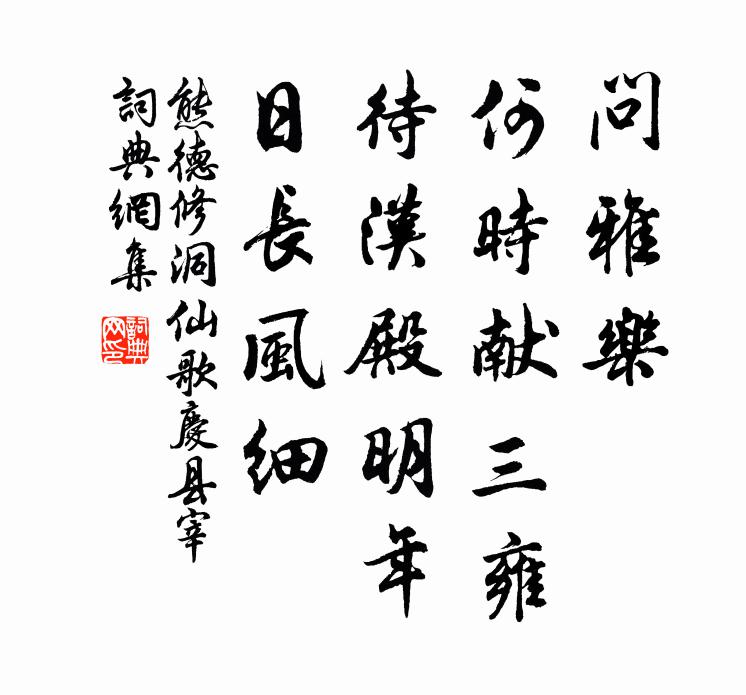 問雅樂
何時献三雍
待漢殿明年
日長風細
熊德修洞仙歌慶县宰
詞典網集
詞典网印